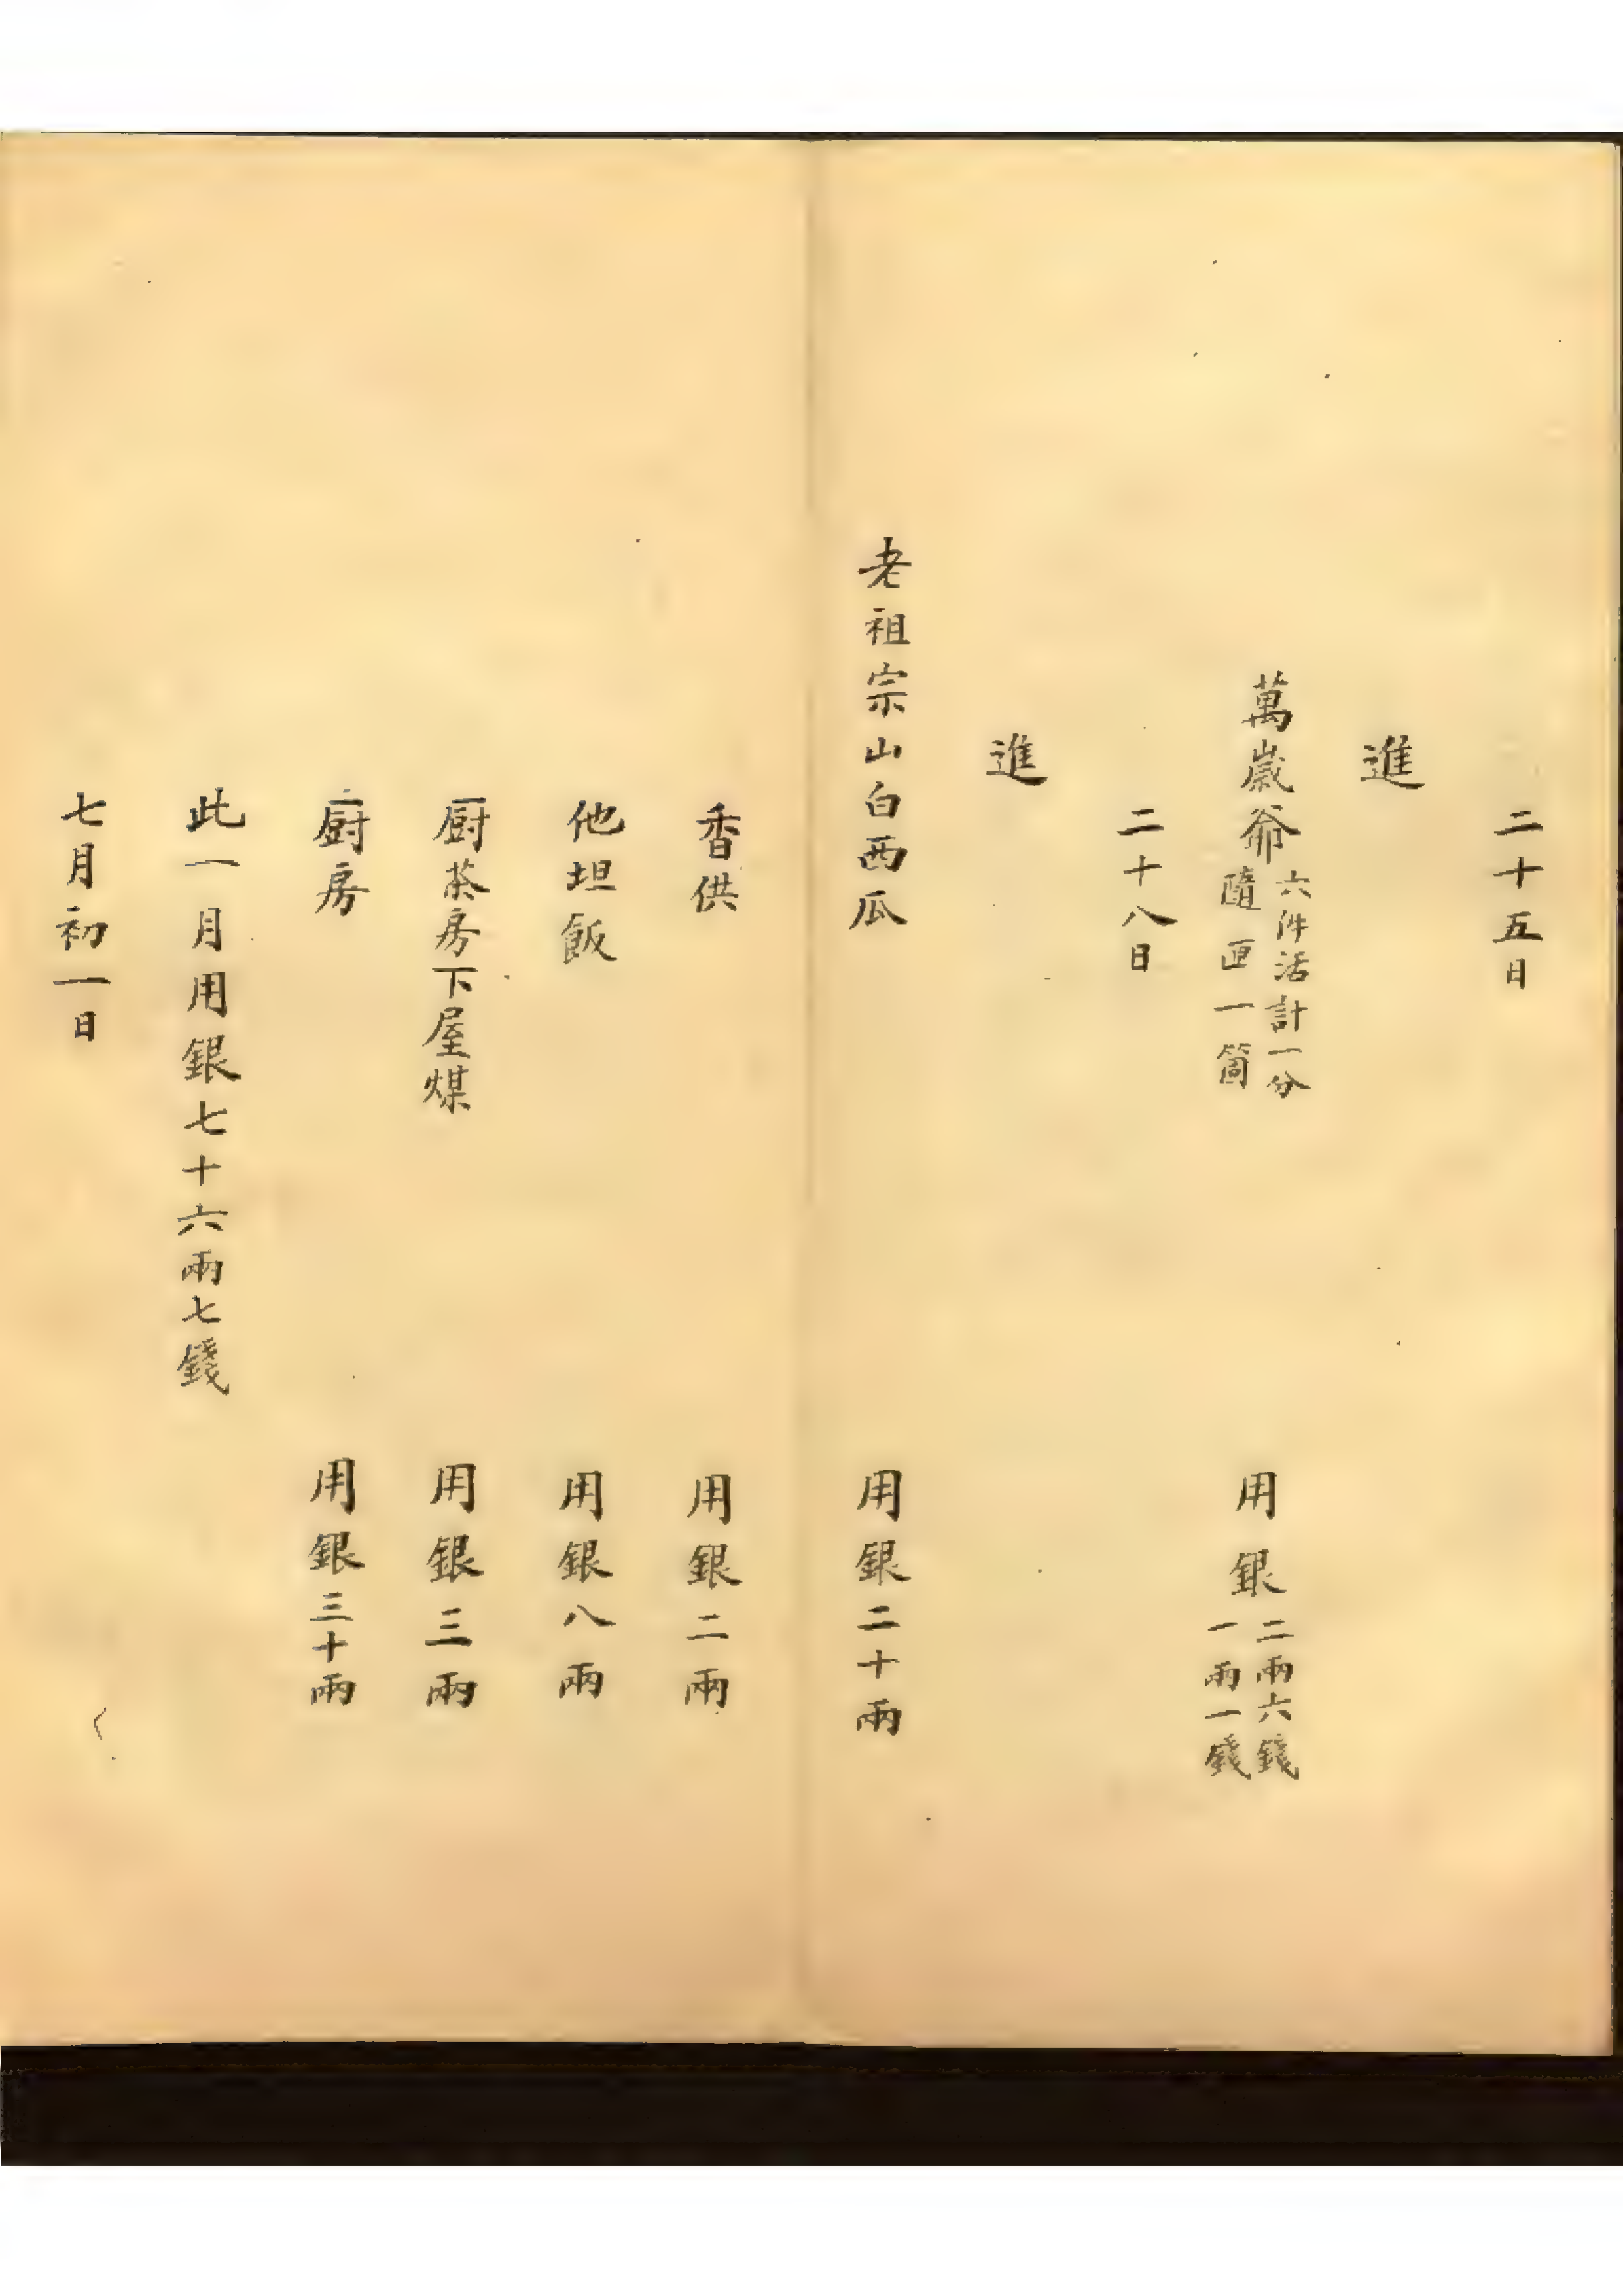 二十五日
進
萬歲爺六件活計一分隨匣一箇 用銀二兩六錢一兩一錢
二十八日
進
老祖宗山白西瓜 用銀二十兩
香供 用銀二兩
他坦飯 用銀八兩
廚茶房下屋煤 用銀三兩
廚房 用銀三十兩
此一月用銀七十六兩七錢
七月初一日